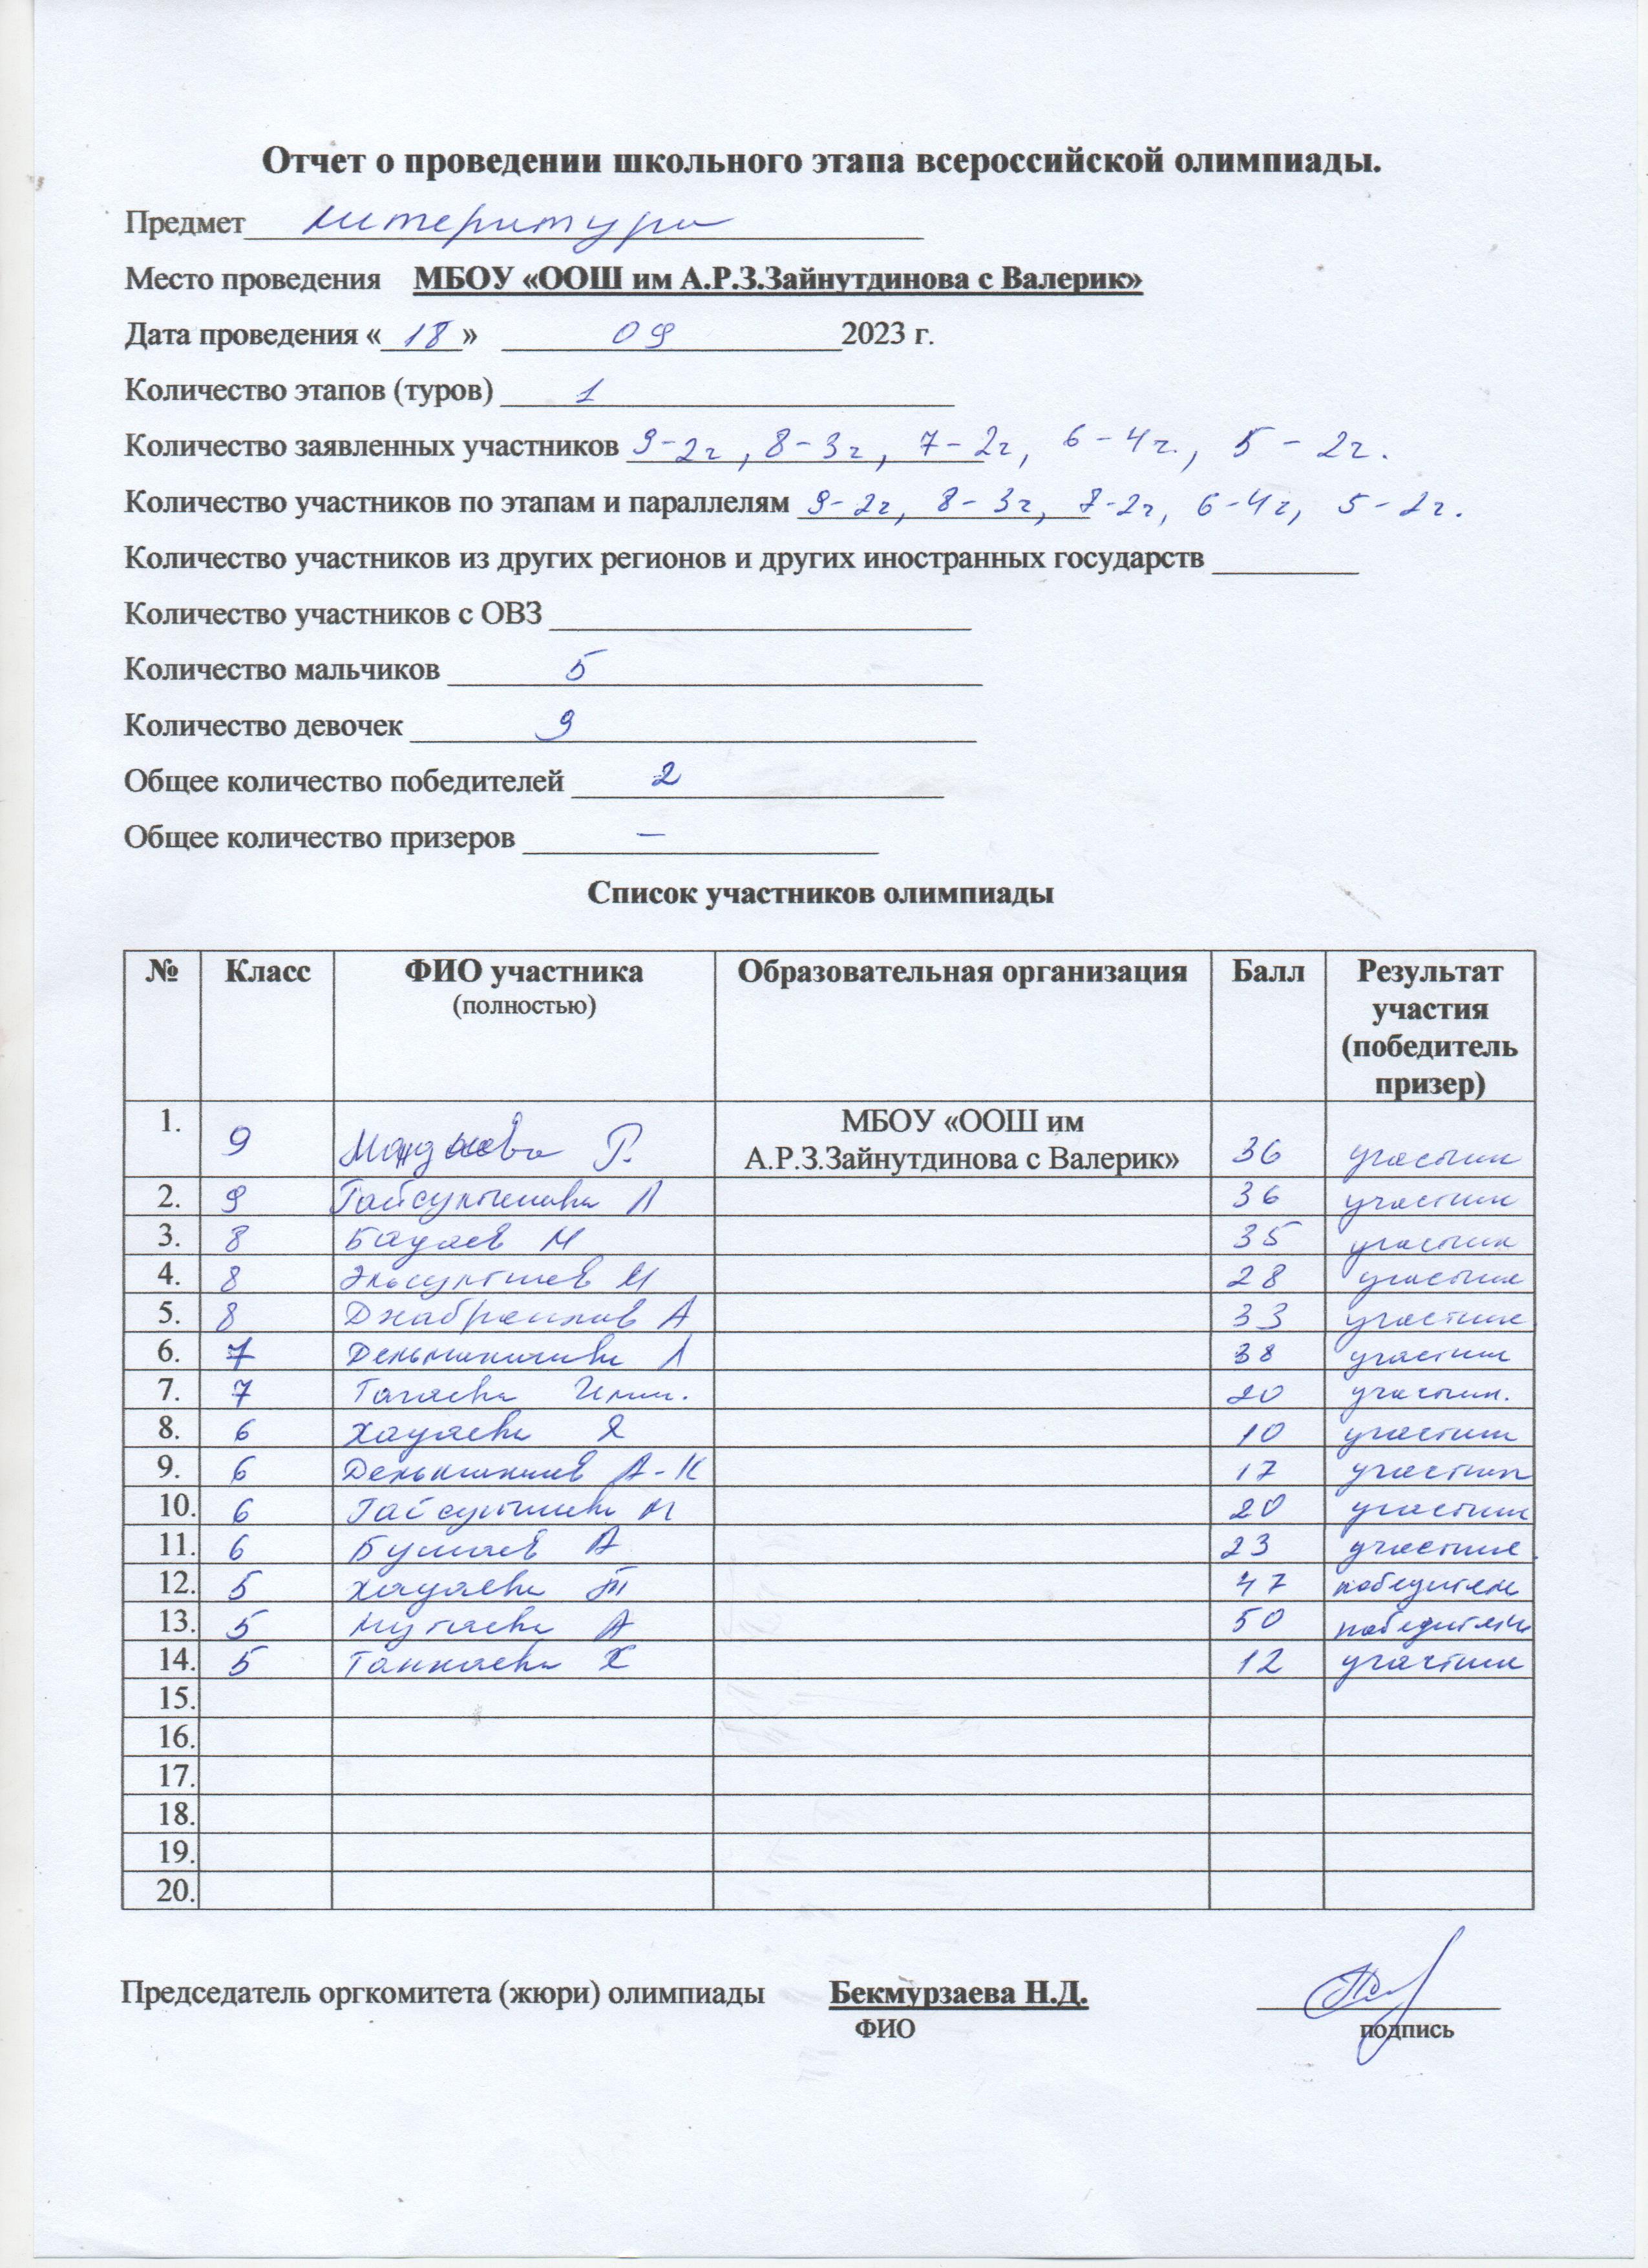 Отчет о проведении школьного этапа всероссийской олимпиады.
Предмет литература
Место проведения МБОУ «ООШ им А.Р.З.Зайнутдинова с Валерик»
Дата проведения «18» 09 2023 г.
Количество этапов (туров) 1
Количество заявленных участников 9-2ч, 8-3ч, 7-2ч, 6-4ч., 5-2ч.
Количество участников по этапам и параллелям 9-2ч, 8-3ч, 7-2ч, 6-4ч, 5-2ч.
Количество участников из других регионов и других иностранных государств
Количество участников с ОВЗ
Количество мальчиков 5
Количество девочек 9
Общее количество победителей 2
Общее количество призеров –
Список участников олимпиады
№ Класс ФИО участника (полностью) Образовательная организация Балл Результат участия (победитель призер)
1. 9 Р. МБОУ «ООШ им А.Р.З.Зайнутдинова с Валерик» 36 участник
2. 9 Гайсултанова Л 36 участник
3. 8 Бауаев М 35 участник
4. 8 Эльсултанов И 28 участник
5. 8 Джабраилов А 33 участник
6. 7 Дельмиханова Л 38 участник
7. 7 Гагаева 20 участник.
8. 6 Хауаева Я 10 участник
9. 6 Дельмиханов А-К 17 участник
10. 6 Гайсултанова М 20 участник
11. 6 Бушаев А 23 участник
12. 5 Хауаева Т 47 победитель
13. 5 Мутаева А 50 победитель
14. 5 Танкаева Х 12 участник
15.
16.
17.
18.
19.
20.
Председатель оргкомитета (жюри) олимпиады Бекмурзаева Н.Д.
ФИО подпись